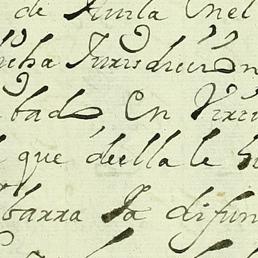 de Avila en el
cha Jurisdicion
bado, En Virtu
que de ella le h
barra Ya difun